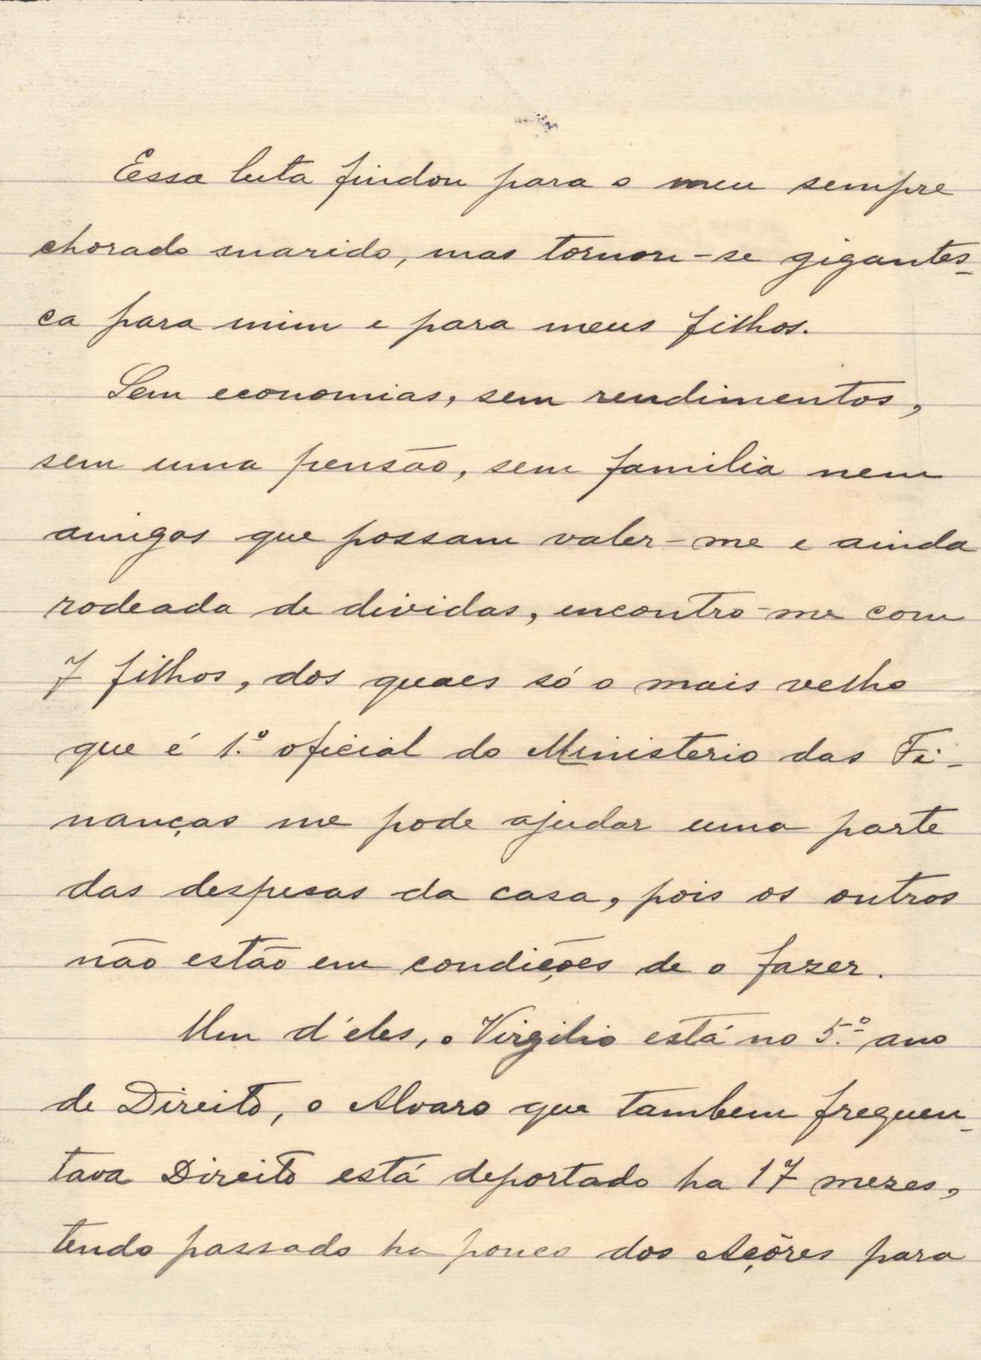 Essa luta findou para o meu sempre
chorado marido, mas tornou-se gigantes-
ca para mim e para meus filhos.
Sem economias, sem rendimentos,
sem uma pensão, sem familia nem
amigos que possam valer-me e ainda
rodeada de dividas, encontro-me com
7 filhos, dos quaes só o mais velho
que é 1.º oficial do Ministerio das Fi-
nanças me pode ajudar uma parte
das despesas da casa, pois os outros
não estão em condições de o fazer.
Um d'eles, o Virgilio está no 5.º ano
de Direito, o Alvaro que tambem frequen-
tava Direito está deportado ha 17 mezes,
tendo passado ha pouco dos Açôres para